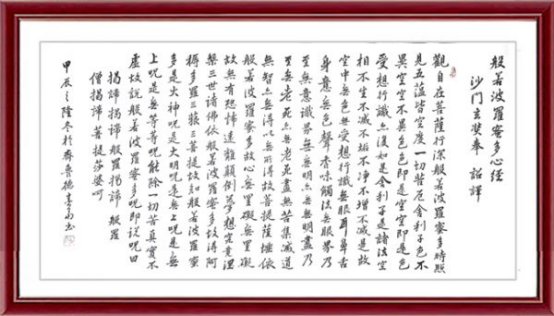 般若波羅蜜多心經
沙門玄奘奉 詔譯
觀自在菩薩行深般若波羅蜜多時照
見五蘊皆空度一切苦厄舍利子色不
異空空不異色色即是空空即是色
受想行識亦復如是舍利子是諸法空
相不生不滅不垢不淨不增不減是故
空中無色無受想行識無眼耳鼻舌
身意無色聲香味觸法無眼界乃
至無意識界無無明亦無無明盡乃
至無老死亦無老死盡無苦集滅道
無智亦無得以無所得故菩提薩埵依
般若波羅蜜多故心無罣礙無罣礙
故無有恐怖遠離顛倒夢想究竟涅
槃三世諸佛依般若波羅蜜多故得阿
耨多羅三藐三菩提故知般若波羅蜜
多是大神呪是大明呪是無
上呪是無等等呪能除一切苦真實不
虛故說般若波羅蜜多呪即說呪曰
揭諦揭諦 般羅揭諦 般羅
僧揭諦 菩提莎婆呵
甲辰之隆冬於齊魯德